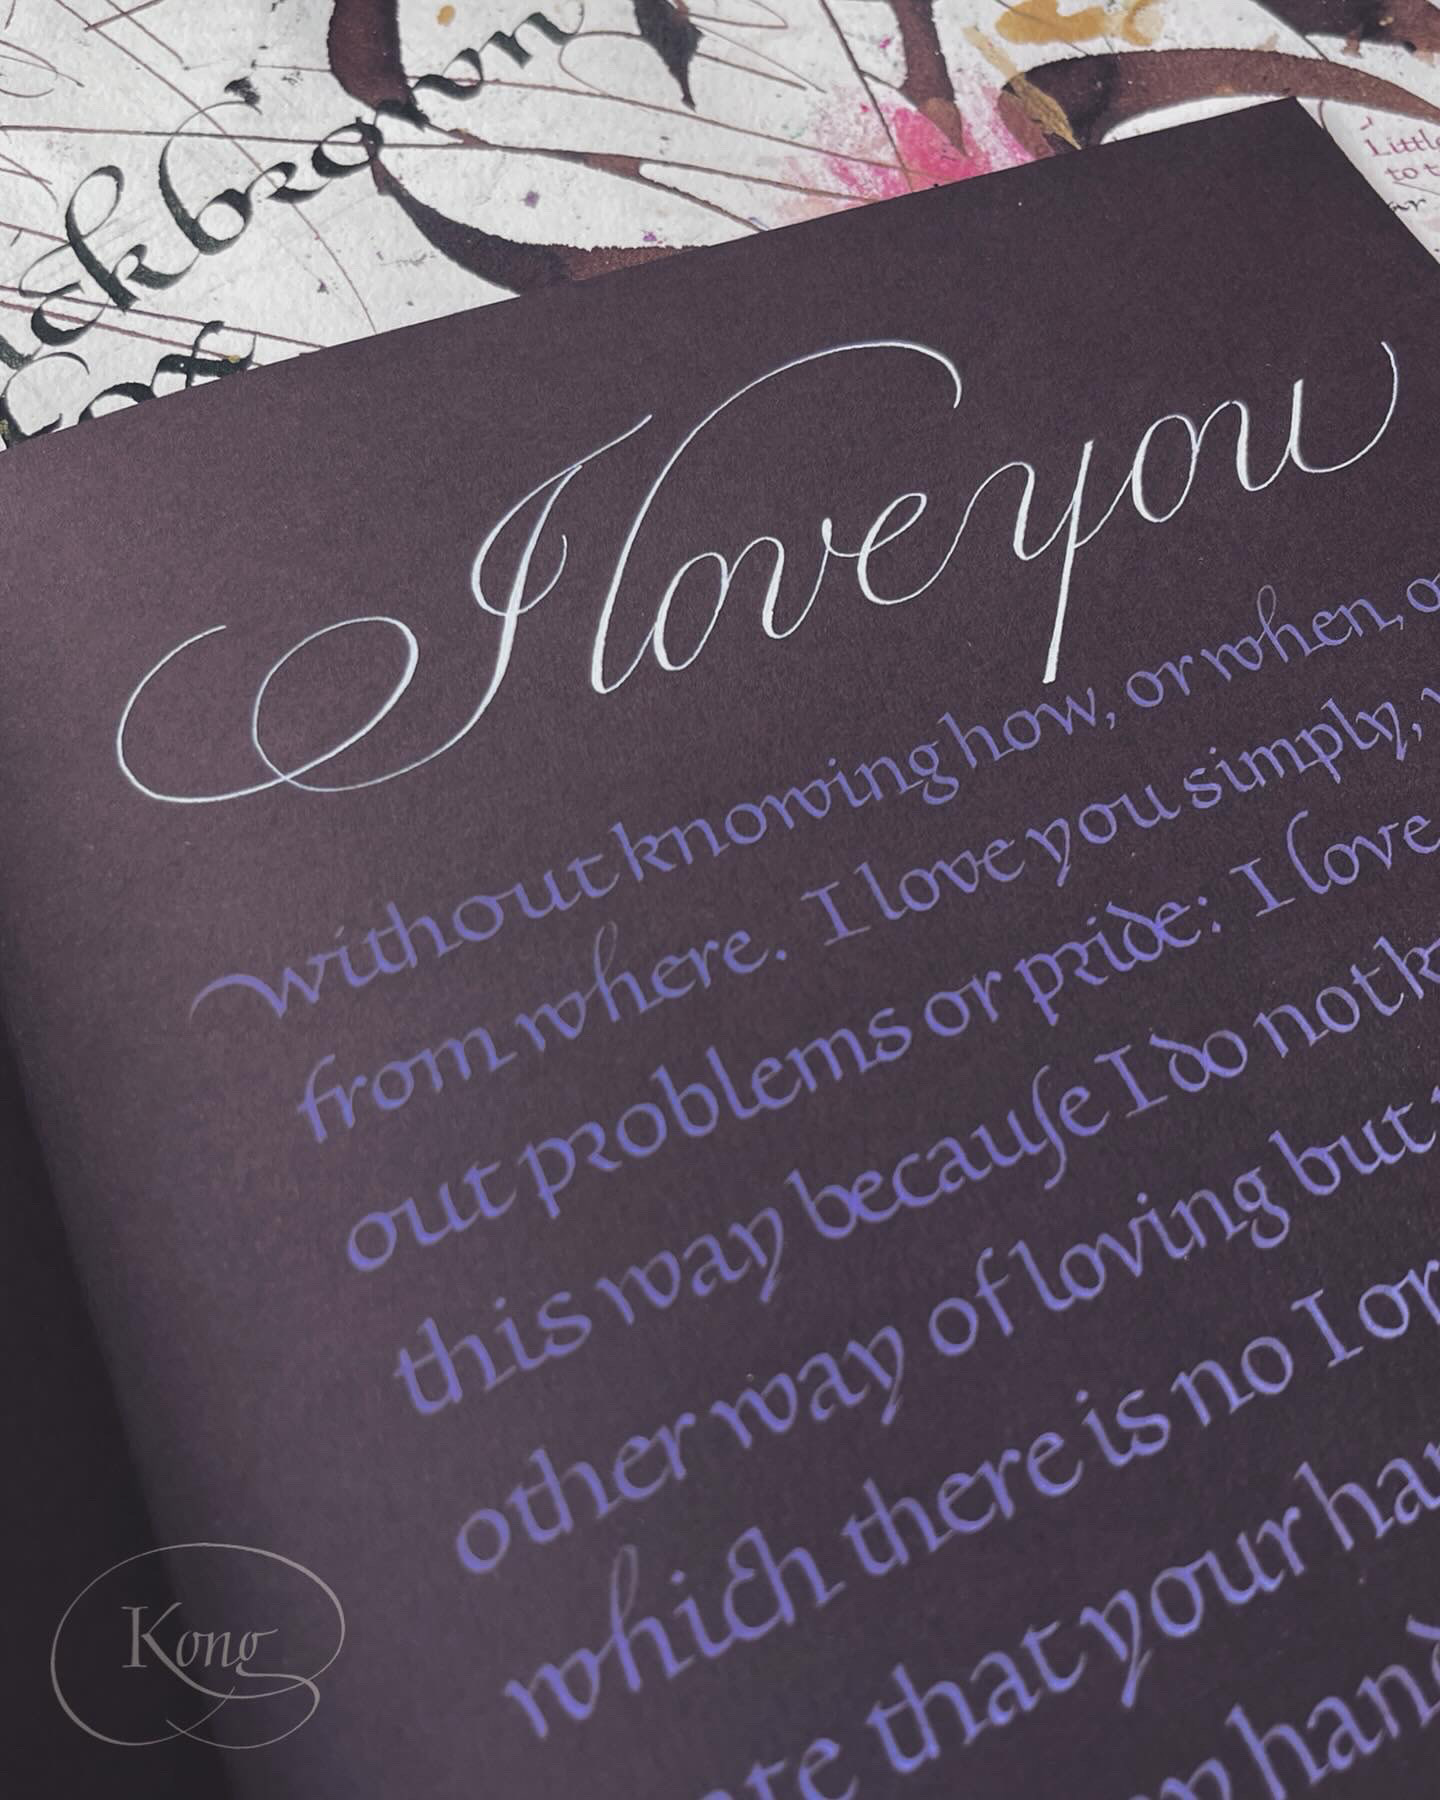 brown
fox
Little
to t
I love you
without knowing how, or when, o
from where. I love you simply,
out problems or pride: I love
this way becauſe I do not k
other way of loving but
which there is no I or
that your han
hand
Kong